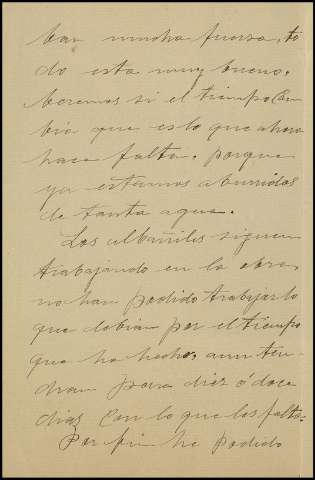 ban muncha fuersa, to
do esta muy bueno.
beremos si el tiempo Can
bia que es lo que ahora
hace falta. porque
ya estamos aburridos
de tanta agua.
Los albañiles siguen
trabajando en la obra,
no han podido trabajar lo
que debian por el tiempo
que ha hecho, aun ten
dran para diez ó doce
dias con lo que les falta.
Por fin he podido